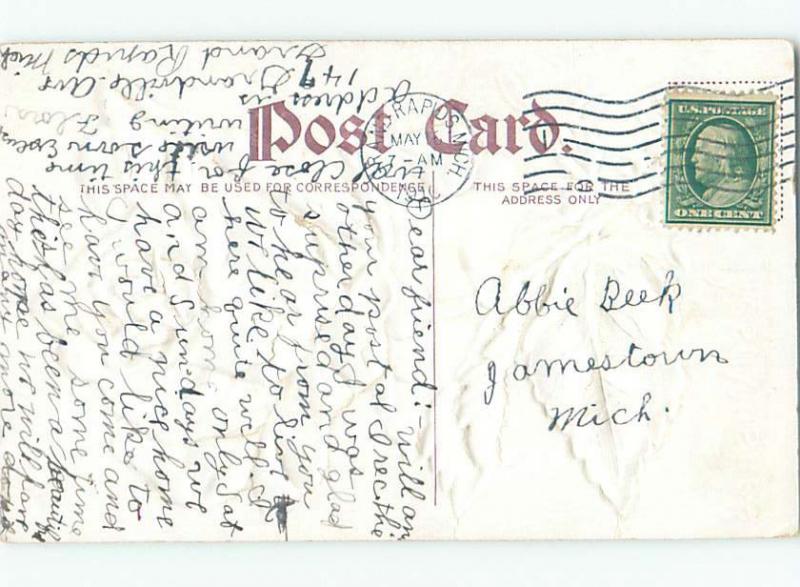 Post Card.
THIS SPACE MAY BE USED FOR CORRESPONDENCE
THIS SPACE FOR THE
ADDRESS ONLY
GRAND RAPIDS, MICH.
MAY
7-AM
U.S. POSTAGE
ONE CENT
Abbie Beek
Jamestown
Mich.
Dear friend:- will an
you postal I rec the
other day I was
suprised and glad
to hear from you
We like to live
here quite well I
am home only at
and Sundays we
have a nice home
I would like to
have you come and
see me some time
this has been a beautiful
day hope we will have
many more
will close for this time
write soon
writing Flora
Address is
149 Grandville Ave
Grand Rapids Mich